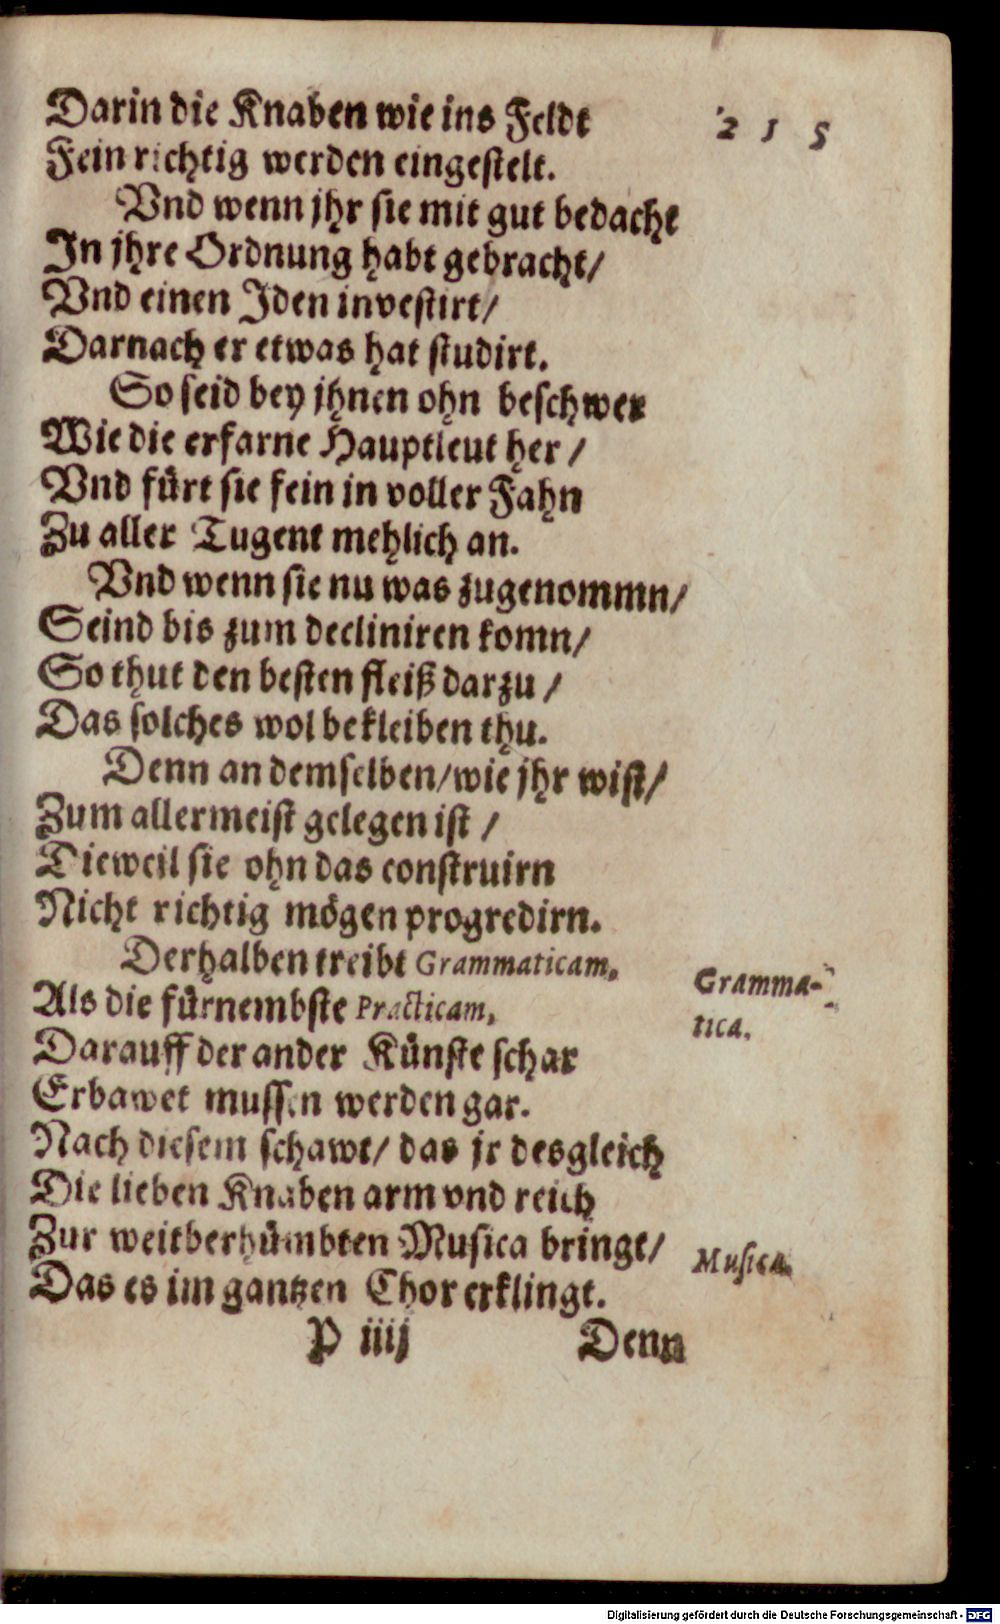 215
Darin die Knaben wie ins Feldt
Fein richtig werden eingestelt.
Vnd wenn jhr sie mit gut bedacht
In jhre Ordnung habt gebracht/
Vnd einen Jden investirt/
Darnach er etwas hat studirt.
So seid bey jhnen ohn beschwer
Wie die erfarne Hauptleut her /
Vnd fürt sie fein in voller Fahn
Zu aller Tugent mehlich an.
Vnd wenn sie nu was zugenommn/
Seind bis zum decliniren komn/
So thut den besten fleiß darzu /
Das solches wol bekleiben thu.
Denn an demselben/wie jhr wist/
Zum allermeist gelegen ist /
Dieweil sie ohn das construirn
Nicht richtig mögen progredirn.
Derhalben treibt Grammaticam,
Gramma-
tica.
Als die fürnembste Practicam,
Darauff der ander Künste schar
Erbawet mussen werden gar.
Nach diesem schawt/ das jr desgleich
Die lieben Knaben arm vnd reich
Zur weitberhümbten Musica bringt/
Musica.
Das es im gantzen Chor erklingt.
P iiij
Denn
Digitalisierung gefördert durch die Deutsche Forschungsgemeinschaft - DFG